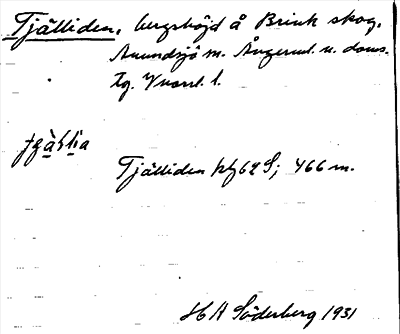 Tjälliden, bergshöjd å Brink skog,
Anundsjö sn. Ångerml. n. doms.
tg. Vnorrl. l.
Tjälliden kbl 62 S; 466 m.
H A Söderberg 1931